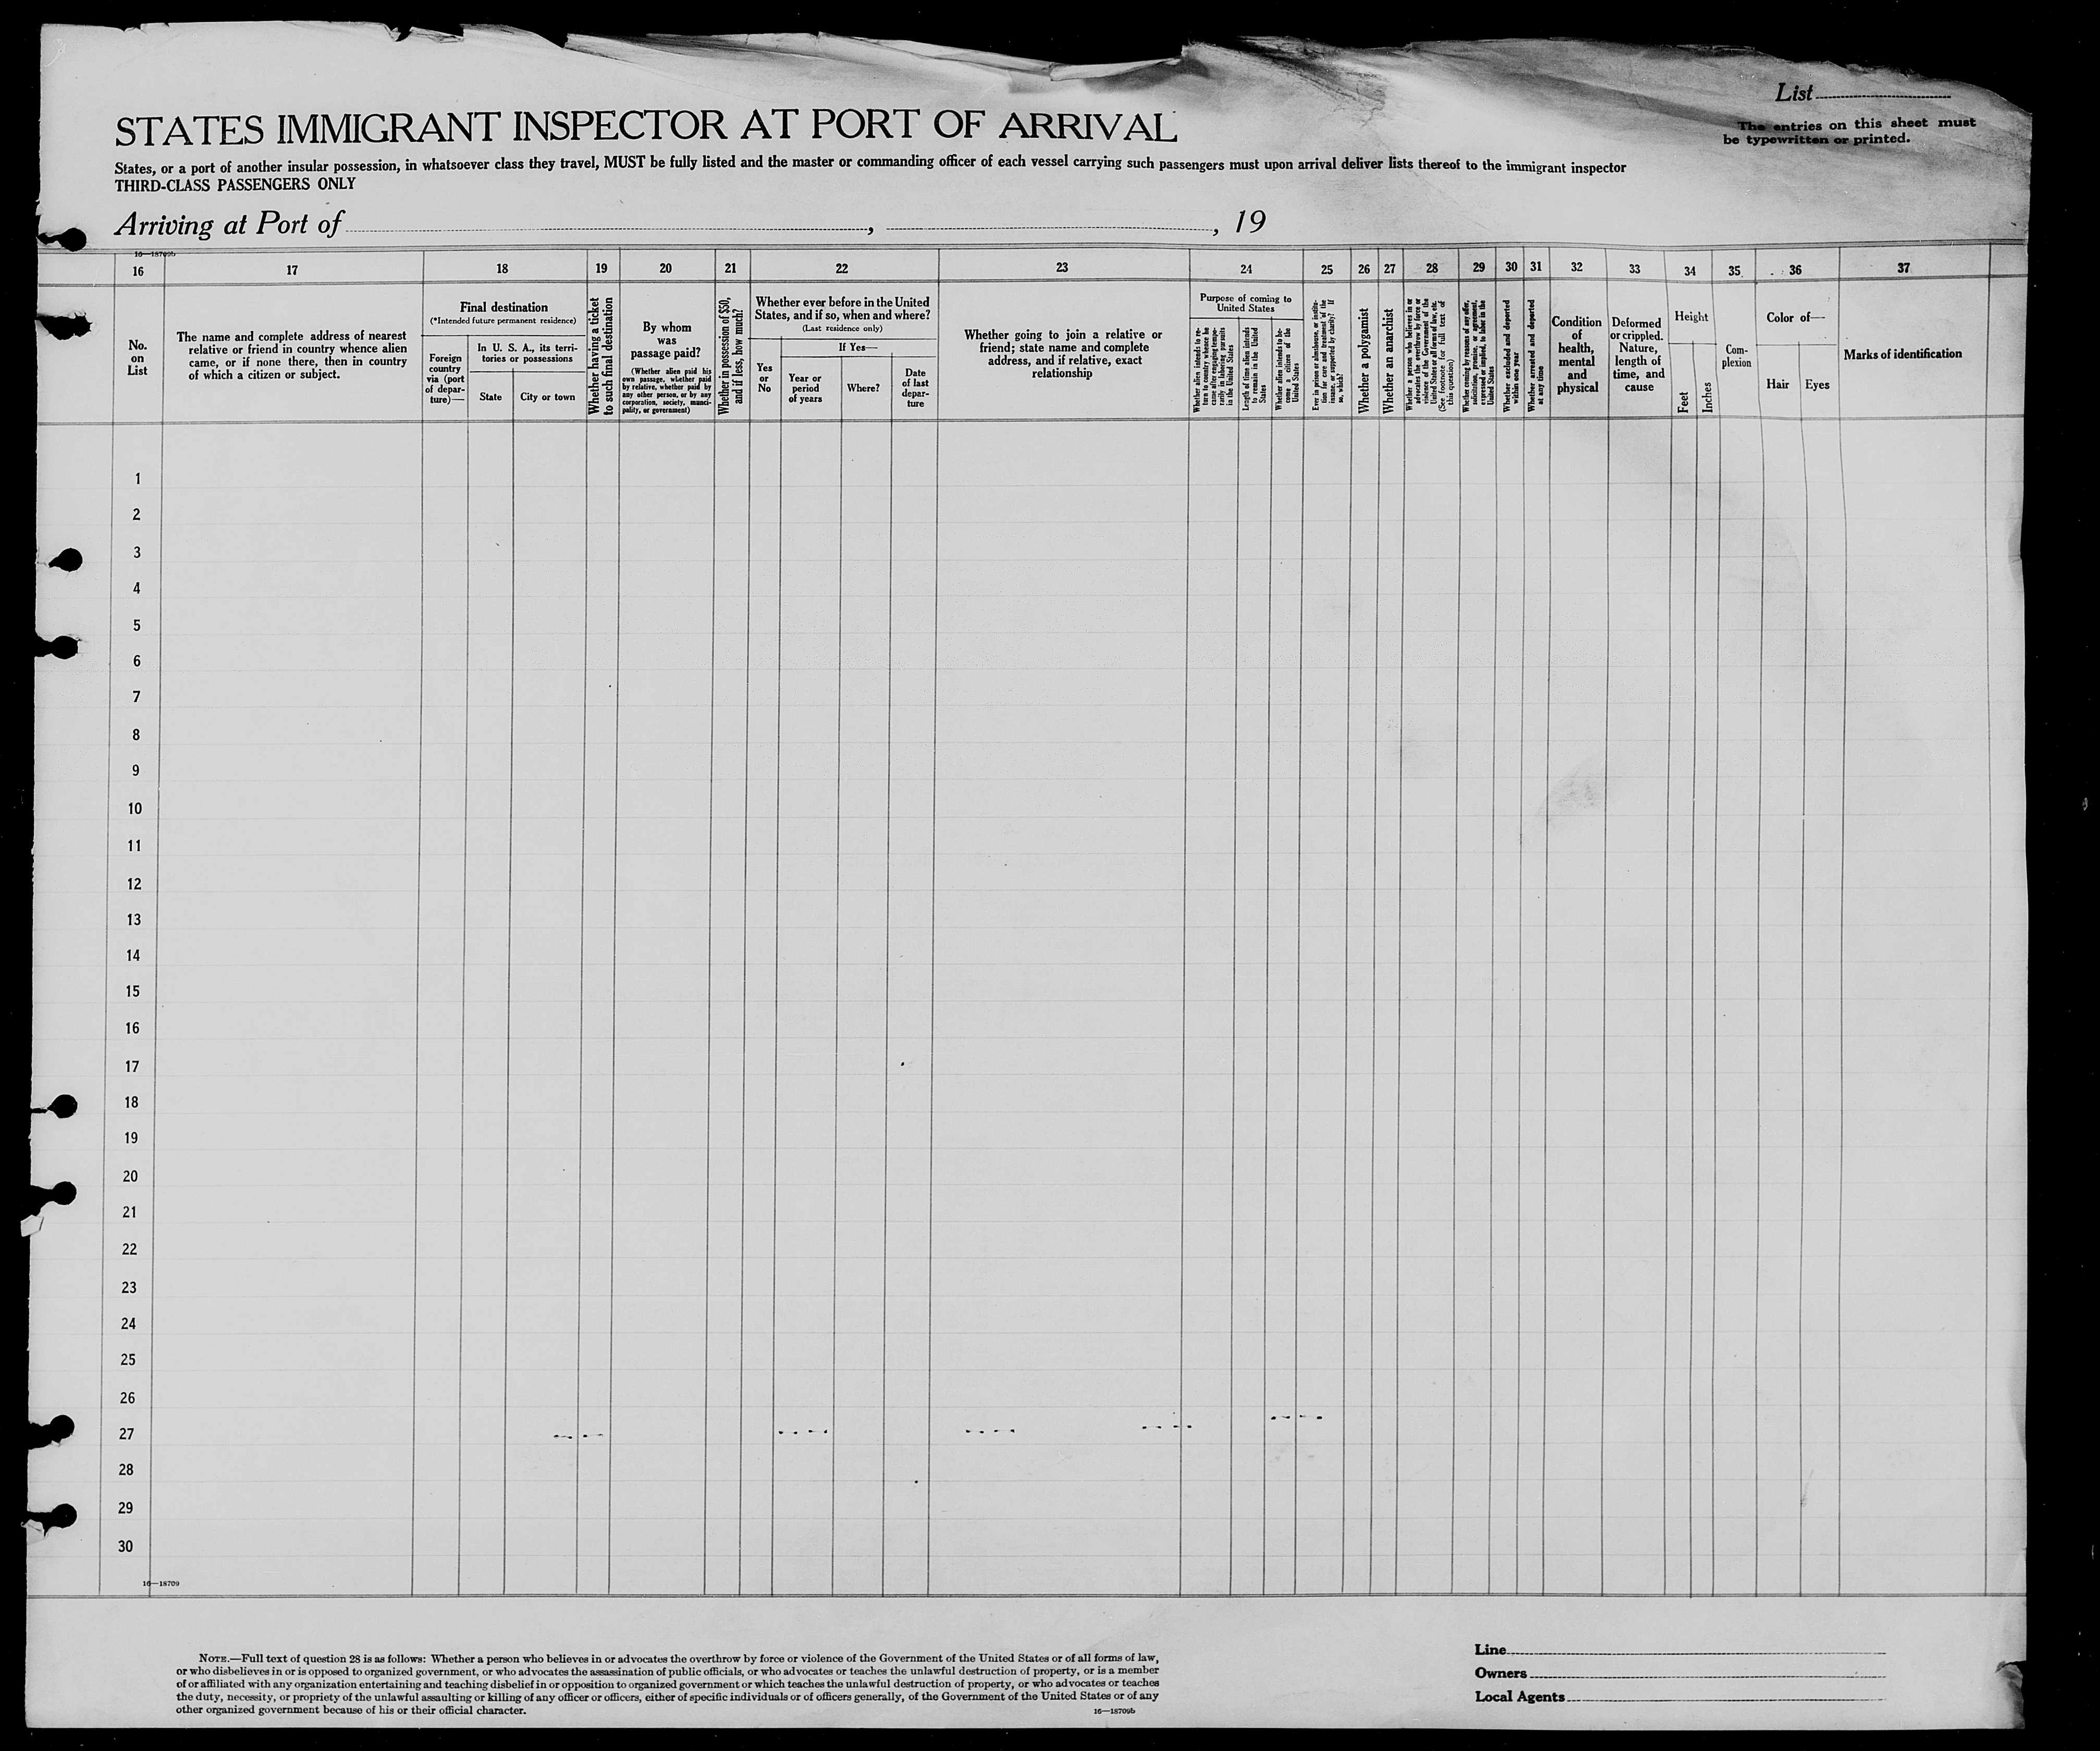 List
The entries on this sheet must
be typewritten or printed.
STATES IMMIGRANT INSPECTOR AT PORT OF ARRIVAL
States, or a port of another insular possession, in whatsoever class they travel, MUST be fully listed and the master or commanding officer of each vessel carrying such passengers must upon arrival deliver lists thereof to the immigrant inspector
THIRD-CLASS PASSENGERS ONLY
Arriving at Port of , , 19
16—18709b
16 17 18 19 20 21 22 23 24 25 26 27 28 29 30 31 32 33 34 35 36 37
No.
on
List
The name and complete address of nearest
relative or friend in country whence alien
came, or if none there, then in country
of which a citizen or subject.
Final destination
(*Intended future permanent residence)
Foreign
country
via (port
of depar-
ture)—
In U. S. A., its terri-
tories or possessions
State
City or town
Whether having a ticket
to such final destination
By whom
was
passage paid?
(Whether alien paid his
own passage, whether paid
by relative, whether paid by
any other person, or by any
corporation, society, munci-
pality, or government)
Whether in possession of $50,
and if less, how much?
Whether ever before in the United
States, and if so, when and where?
(Last residence only)
Yes
or
No
If Yes—
Year or
period
of years
Where?
Date
of last
depar-
ture
Whether going to join a relative or
friend; state name and complete
address, and if relative, exact
relationship
Purpose of coming to
United States
Whether alien intends to re-
turn to country whence he
came after engaging tempo-
rarily in laboring pursuits
in the United States
Length of time alien intends
to remain in the United
States
Whether alien intends to be-
come a citizen of the
United States
Ever in prison or almshouse, or institu-
tion for care and treatment of the
insane, or supported by charity? If
so, which?
Whether a polygamist
Whether an anarchist
Whether a person who believes in or
advocates the overthrow by force or
violence of the Government of the
United States or all forms of law, etc.
(See footnote for full text of
this question)
Whether coming by reasons of any offer,
solicitation, promise, or agreement,
expressed or implied, to labor in the
United States
Whether excluded and deported
within one year
Whether arrested and deported
at any time
Condition
of
health,
mental
and
physical
Deformed
or crippled.
Nature,
length of
time, and
cause
Height
Feet
Inches
Com-
plexion
Color of—
Hair
Eyes
Marks of identification
1
2
3
4
5
6
7
8
9
10
11
12
13
14
15
16
17
18
19
20
21
22
23
24
25
26
27
28
29
30
16—18709
NOTE.—Full text of question 28 is as follows: Whether a person who believes in or advocates the overthrow by force or violence of the Government of the United States or of all forms of law,
or who disbelieves in or is opposed to organized government, or who advocates the assassination of public officials, or who advocates or teaches the unlawful destruction of property, or is a member
of or affiliated with any organization entertaining and teaching disbelief in or opposition to organized government or which teaches the unlawful destruction of property, or who advocates or teaches
the duty, necessity, or propriety of the unlawful assaulting or killing of any officer or officers, either of specific individuals or of officers generally, of the Government of the United States or of any
other organized government because of his or their official character.
16—18709b
Line
Owners
Local Agents